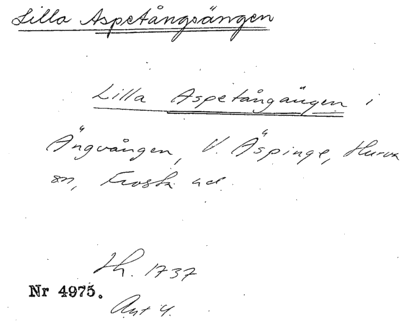 Lilla Aspetångsängen
Lilla Aspetångängen i
Ängvången, V. Äspinge, Hurva
sn, Frosta hd.
Lh. 1737
Nr 4975.
Akt 4.